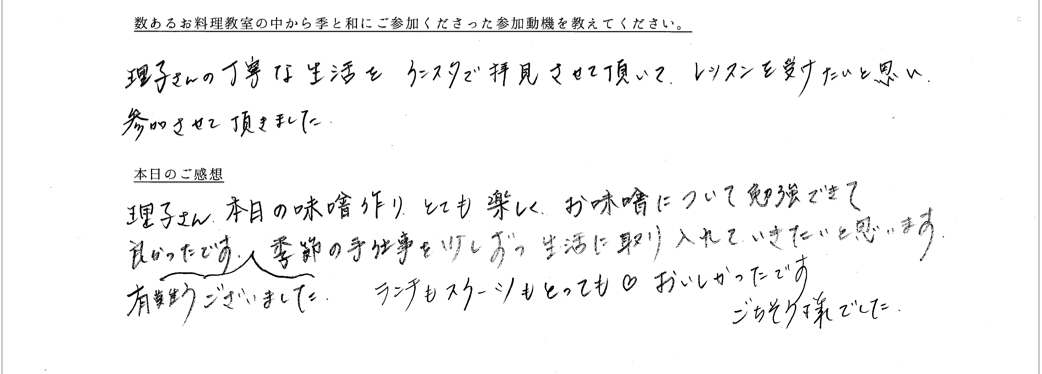 数あるお料理教室の中から季と和にご参加くださった参加動機を教えてください。
理子さんの丁寧な生活を インスタで拝見させて頂いて、レッスンを受けたいと思い、
参加させて頂きました。
本日のご感想
理子さん、本日の味噌作り、とても楽しく、お味噌について勉強できて
良かったです。季節の手仕事を少しずつ生活に取り入れていきたいと思います。
有難うございました。 ランチもスイーツもとっても♡おいしかったです
ごちそう様でした。